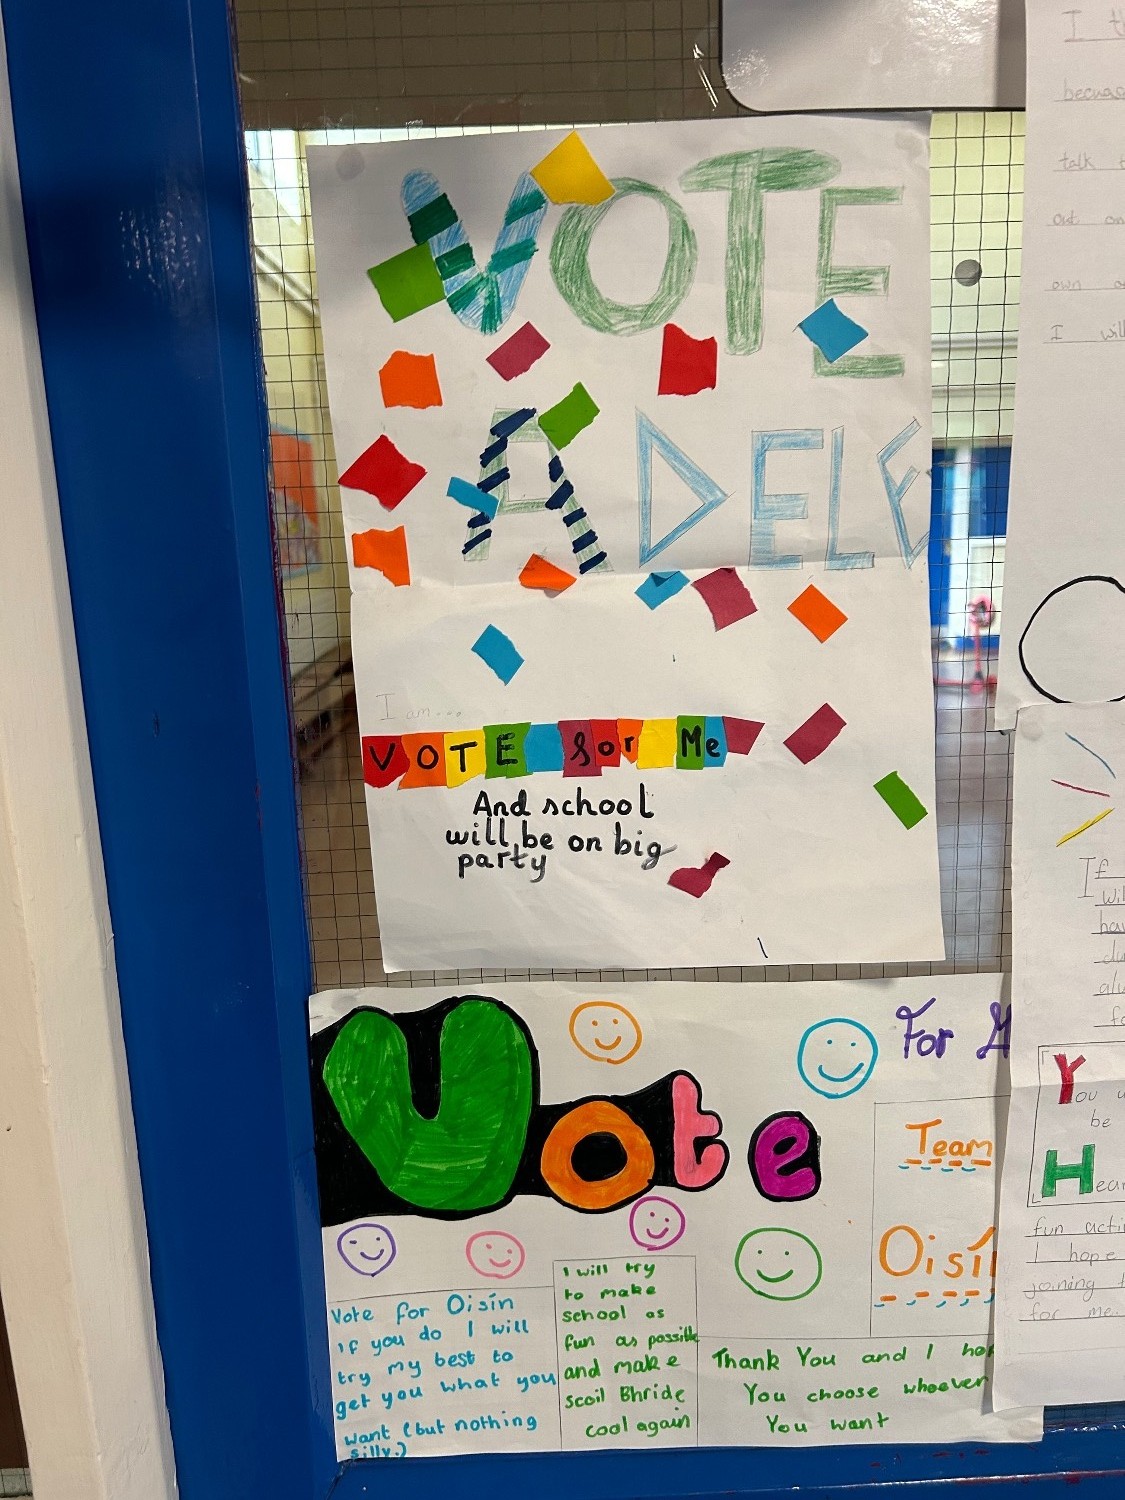 VOTE
ADELE
I am...
VOTE for Me
And school
will be on big
party
Vote
For
Team
Oisín
Vote for Oisín
if you do I will
try my best to
get you what you
want (but nothing
silly.)
I will try
to make
school as
fun as possible
and make
scoil Bhride
cool again
Thank You and I
You choose whoever
You want
I
talk
out
own
I will
If
You
be
fun
I hope
joining
for me.